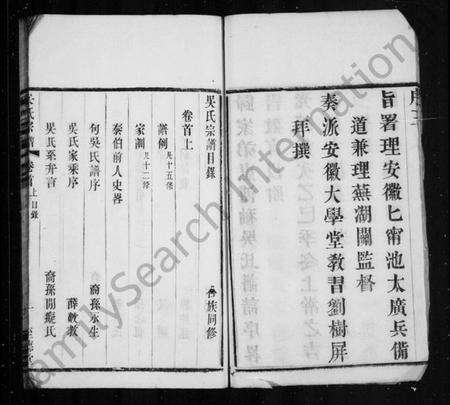 旨署理安徽七甯池太廣兵備
道兼理蕪湖關監督
奏派安徽大學堂教習劉樹屏
拜撰
吳氏宗譜目錄
族同修
卷首上
譜例 凡十五條
家訓 凡十二條
泰伯前人史畧
句吳氏譜序 裔孫永生
吳氏家乘序 薛敷教
吳氏系弁言 裔孫開龍氏
吳氏宗譜
FamilySearch International